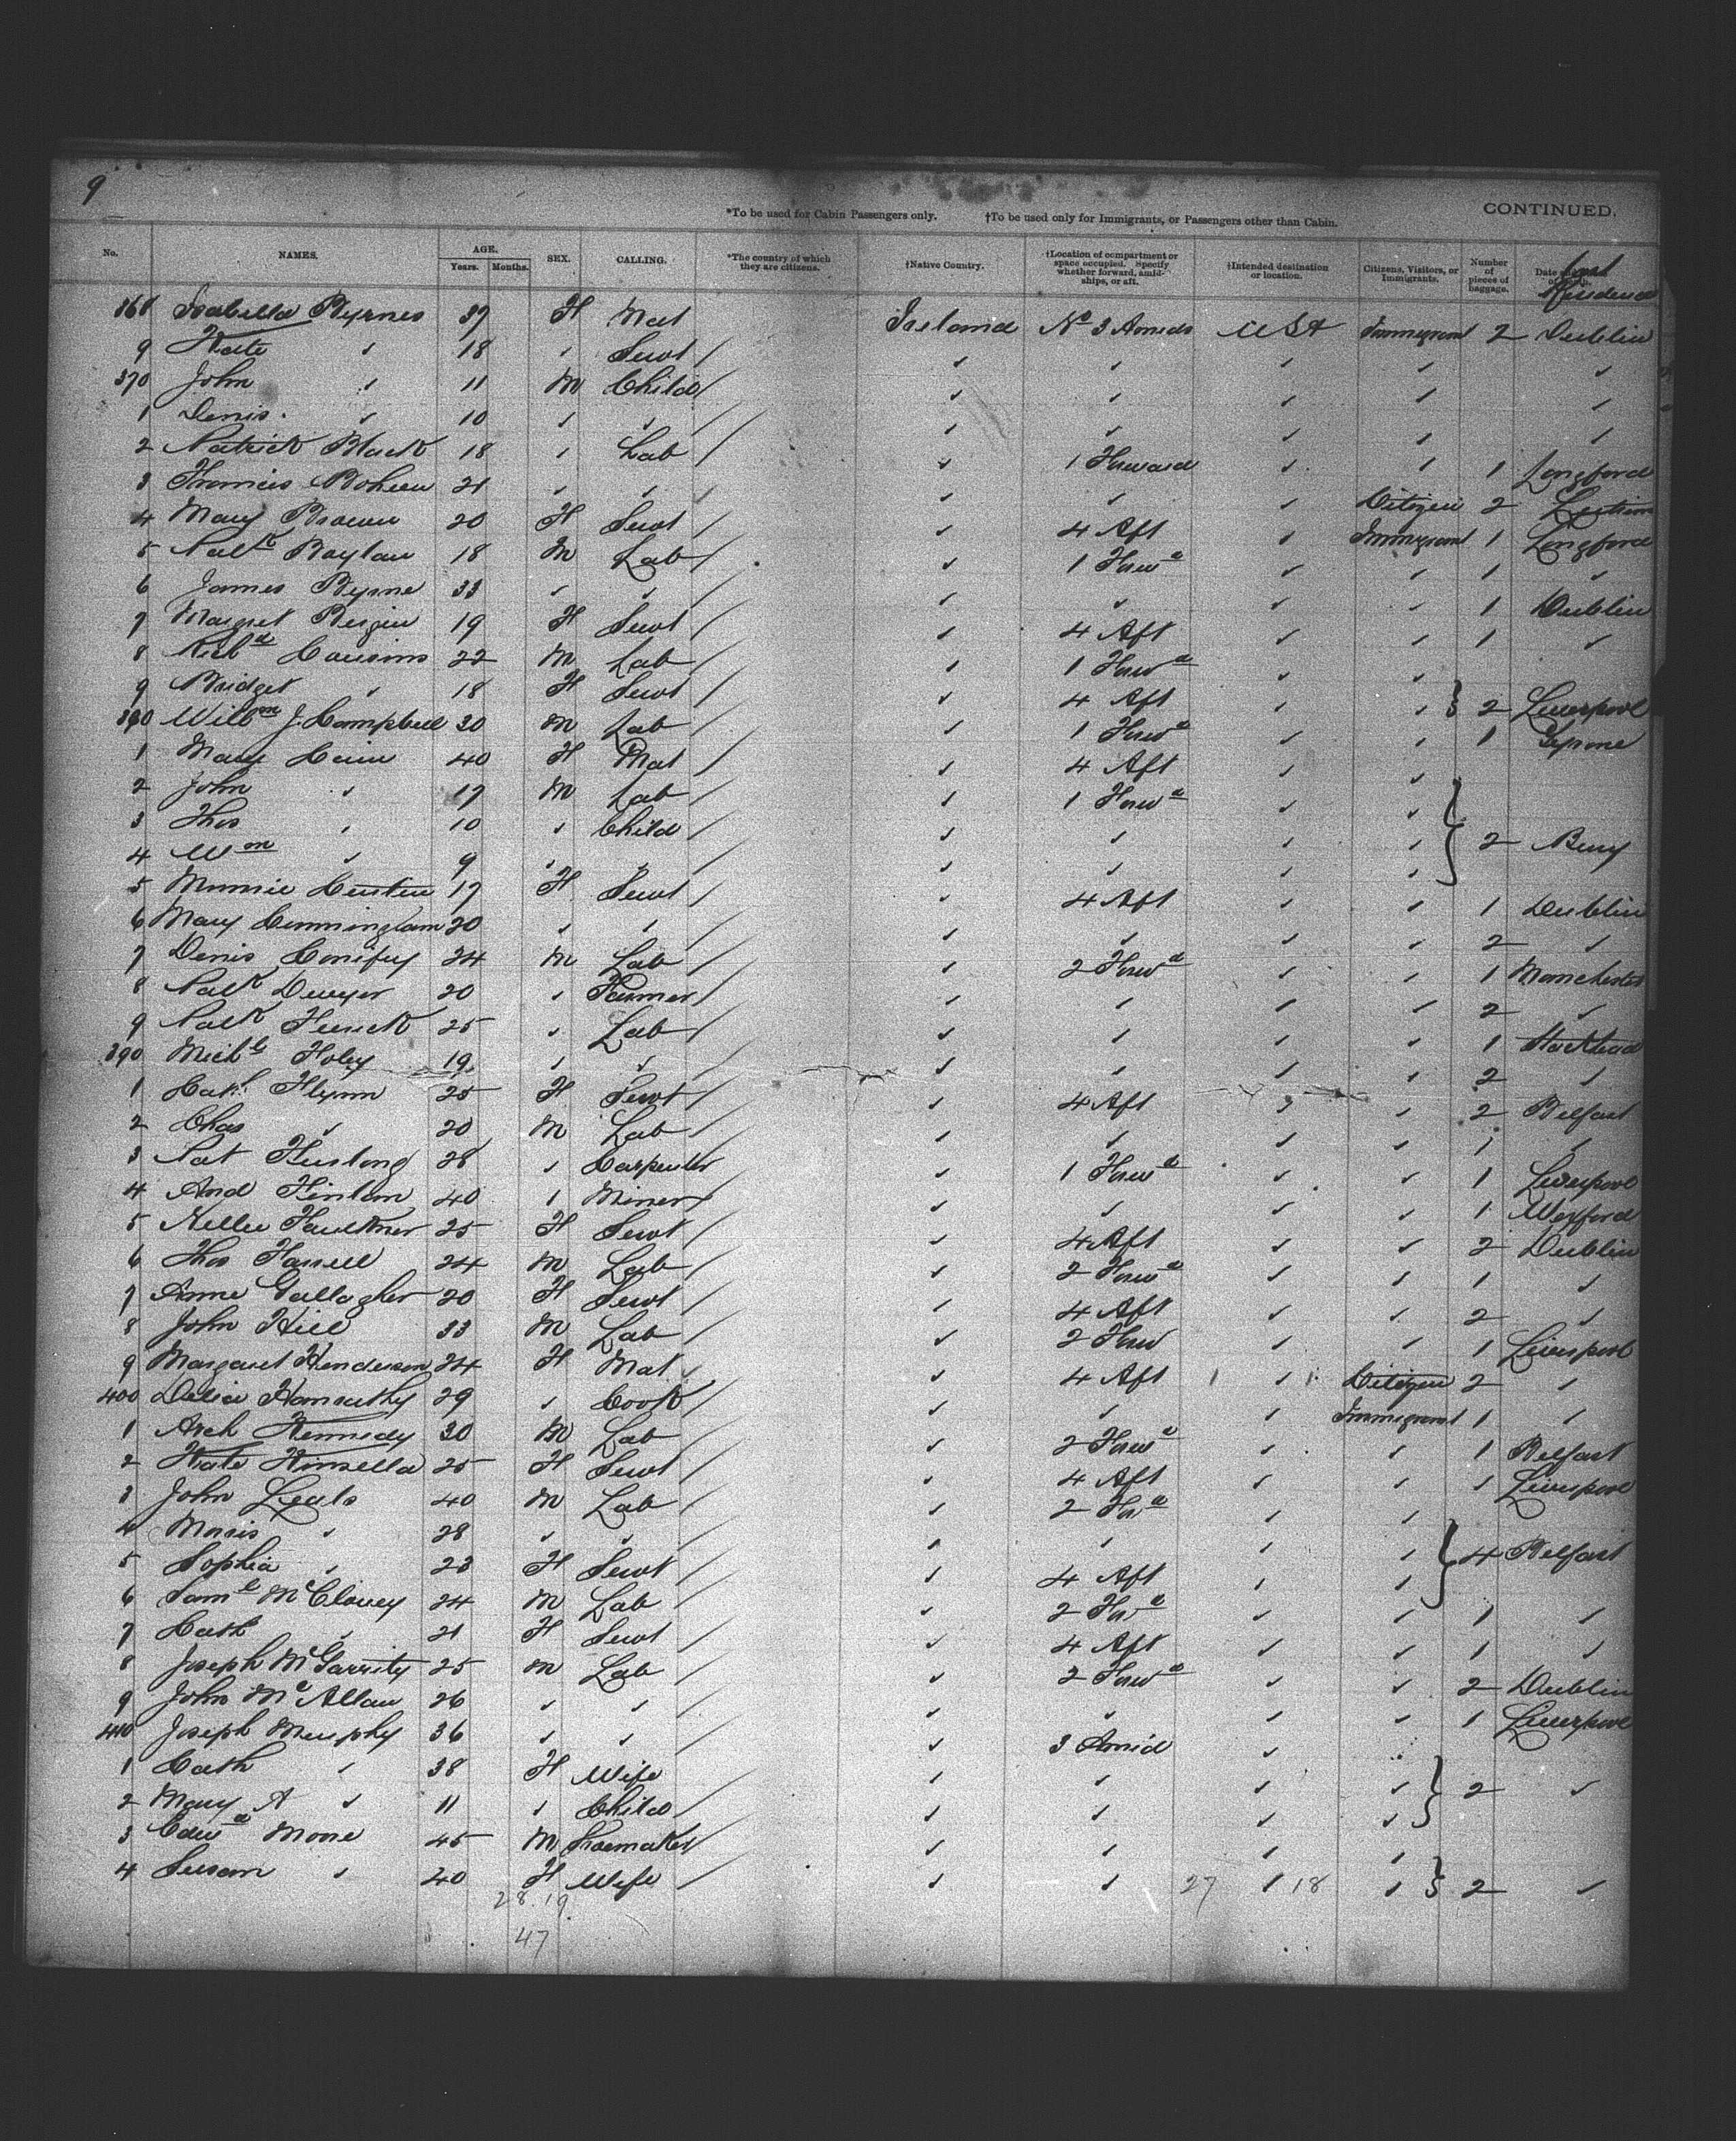 9
*To be used for Cabin Passengers only. †To be used only for Immigrants, or Passengers other than Cabin. CONTINUED.
No. NAMES. AGE. Years. Months. SEX. CALLING. *The country of which they are citizens. †Native Country. †Location of compartment or space occupied. Specify whether forward, amidships, or aft. †Intended destination or location. Citizens, Visitors, or Immigrants. Number of pieces of baggage. Date Last Residence
368 Isabella Byrnes 37 F Mat Ireland No 3 Amids USA Immigrant 2 Dublin
9 Kate " 18 " Servt / " " " " "
370 John " 11 M Child / " " " " "
1 Denis " 10 " " / " " " " "
2 Patrick Black 18 " Lab / " 1 Forward " " 1 Longford
3 Thomas 21 " " / " " " Citizen 2 Leitrim
4 Mary Brown 20 F Servt / " 4 Aft " Immigrant 1 Longford
5 Patk Boylan 18 M Lab / " 1 Forwd " " 1 "
6 James Byrne 33 " " / " " " " 1 Dublin
7 Margret 19 F Servt / " 4 Aft " " 1 "
8 Richd Cousins 22 M Lab / " 1 Forwd " "
9 Bridget " 18 F Servt / " 4 Aft " " } 2 Liverpool
380 Willm J Campbell 30 M Lab / " 1 Forwd " " 1 Tyrone
1 Mary 40 F Mat / " 4 Aft " "
2 John " 17 M Lab / " 1 Forwd " "
3 Thos " 10 " Child / " " " " } 2 Bury
4 Wm " 9 " " / " " " "
5 Minnie 17 F Servt / " 4 Aft " " 1 Dublin
6 Mary Cunningham 20 " " / " " " " 2 "
7 Denis 24 M Lab / " 2 Forwd " " 1 Manchester
8 Patk Dwyer 20 " Farmer / " " " " 2 "
9 Patk 25 " Lab / " " " " 1
390 Michl Foley 19 " " / " " " " 2 "
1 Cath Flynn 25 F Servt / " 4 Aft " " 2 Belfast
2 Chas " 20 M Lab / " " " " 1 "
3 Pat Furlong 28 " Carpenter " 1 Forwd " " 1 Liverpool
4 And 40 " Miner / " " " " 1 Wexford
5 Nellie Faulkner 25 F Servt / " 4 Aft " " 2 Dublin
6 Thos Farrell 24 M Lab / " 2 Forwd " " 1 "
7 Anne Gallagher 20 F Servt / " 4 Aft " " 2 "
8 John Hill 33 M Lab / " 2 Forw " " 1 Liverpool
9 Margaret Henderson 24 F Mat / " 4 Aft " Citizen 2 "
400 Delia 29 " Cook / " " " Immigrant 1 "
1 Arch Kennedy 30 M Lab / " 2 Forwd " " 1 Belfast
2 Kate Kinsella 25 F Servt / " 4 Aft " " 1 Liverpool
3 John 40 M Lab / " 2 Ford " "
4 Morris " 28 " " / " " " " } 4 Belfast
5 Sophia " 23 F Servt / " 4 Aft " "
6 Saml 24 M Lab / " 2 Ford " " 1 "
7 Cath " 21 F Servt / " 4 Aft " " 1 "
8 Joseph McGarrity 25 M Lab / " 2 Forwd " " 2 Dublin
9 John McAllan 26 " " / " " " " 1 Liverpool
410 Joseph Murphy 36 " " / " 3 Amid " "
1 Cath " 38 F Wife / " " " " } 2 "
2 Mary A " 11 " Child / " " " "
3 Edwd Moore 45 M Shoemaker / " " " "
4 Susan " 40 F Wife / " " 27 " 18 " } 2 "
28 19
47